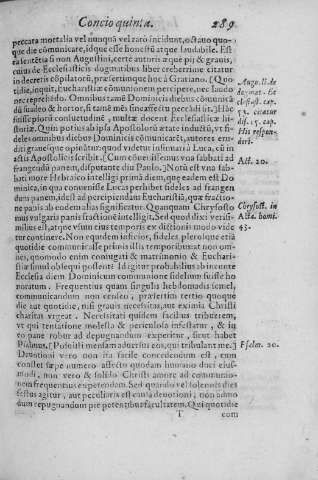 Concio quinta. 289
peccata mortalia vel nunquã vel rarò incidunt, octauo quo-
que die cõmunicate, idque esse honestũ atque laudabile. Est
sententia si non Augustini, certe autoris æquè pij & grauis,
cuius de Ecclesiasticis dogmatibus liber creberrime citatur
in decretis cõpilatori, præsertimque hoc à Gratiano. [Quo
tidie, inquit, Eucharistiæ cõmunionem percipere, nec laudo
nec reprehẽdo. Omnibus tamẽ Dominicis diebus cõmunicã
dũ suadeo & hortor, si tamẽ mẽs sine affectu peccãdi sit.] Hãc
consuetudinẽ, multæ docent Ecclesiasticæ hi-
storiæ. Quin potius ab ipsa Apostolorũ ætate inductũ, vt fi-
deles omnibus diebus Dominicis cõmunicarẽt, autores
opinãtur: quod videtur insinuari à Luca, cũ in
actis Apostolicis scribit. [Cum conuenissemus vna sabbati ad
frangendũ panem, disputante diu Paulo.] Notũ est vna sab-
bati more Hebraico intelligi primã diem, quæ eadem est Do
minica, in qua conuenisse Lucas perhibet fideles ad frangen
dum panem, id est ad percipiendam Eucharistiã, quæ fractio-
ne panis ab eodem alias significatur. Quanquam Chrysosto
mus vulgaris panis fractionẽ intelligit, Sed quod dixi verisi-
milius est, atque vsum eius temporis ex dictionis modo vide
tur continere. Non equidem inficior, fideles plerosque etiã
quotidie communicasse primis illis temporibus, vt non om-
nes, quomodo enim coniugati & matrimonio & Euchari-
stiæ simul obsequi possent? Id igitur probabilius ab ineunte
Ecclesia diem Dominicum communione fidelium fuisse ho
noratum. Frequentius quam singulis hebdomadis semel,
communicandum non censeo, præsertim tertio quoque
die aut quotidie, nisi grauis necessitas, aut eximia Christi
charitas vrgeat. Necessitati quidem facilius tribuerem,
vt qui tentatione molesta & periculosa infestatur, & in
eo pane robur ad depugnandum experitur, sicut habet
Psalmus, [Posuisti mensam aduersus eos, qui tribulant me.]
Deuotioni vero non ita facile concedendum est, cum
constet sæpe numero affectu quodam humano duci eius-
modi, non vero & solido Christi amore ad communio-
nem frequentius expetendam. Sed quando vel solennis dies
festus agitur, aut peculiaris est causa deuotioni, non admo
dum repugnandum pie petentibus facultatem. Qui quotidie
T com
Augu. li. de
dogmat. Ec
clesiast. cap.
53. citatur
dist. 15. cap.
His respon-
deri.
Act. 20.
Chrysost. in
Acta. homi.
43.
Psalm. 20.